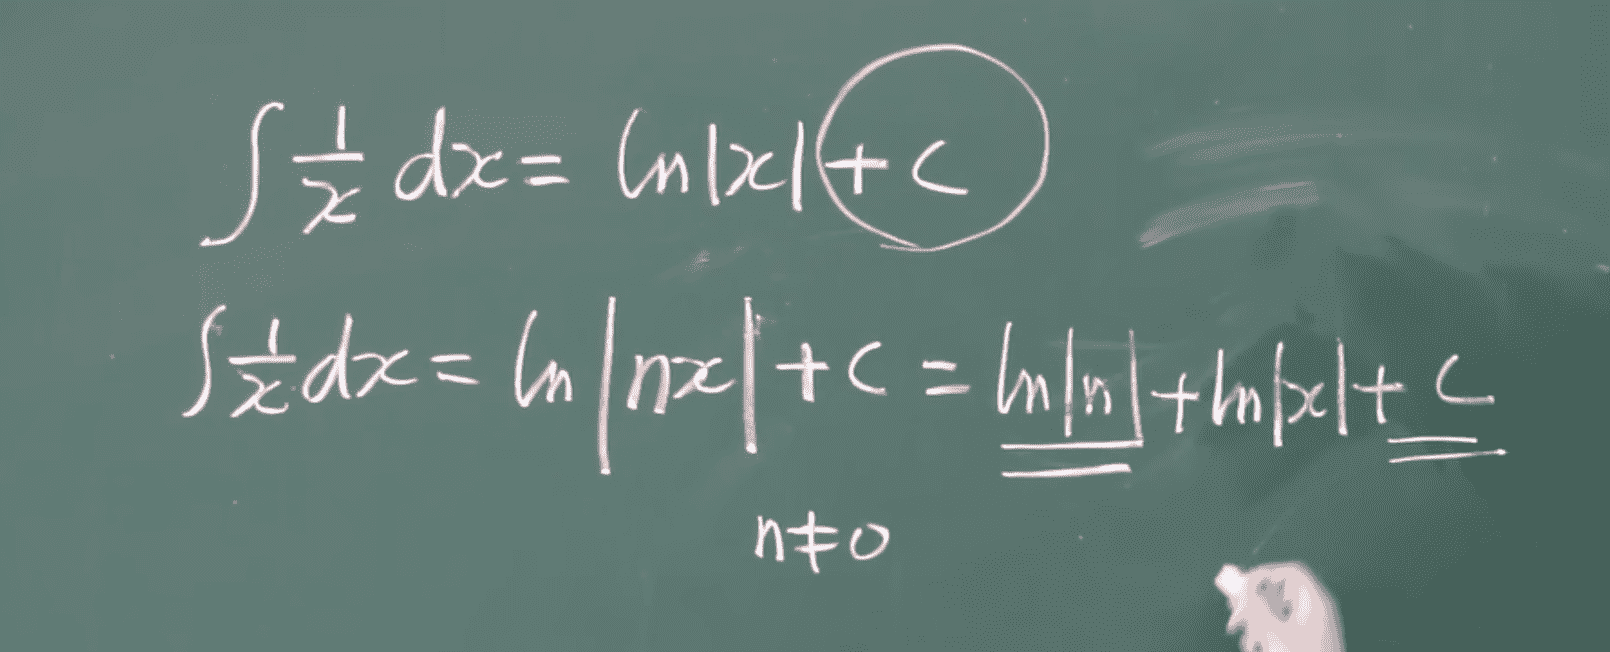 ∫ 1/x dx = ln|x| + c
∫ 1/x dx = ln|nx| + c = ln|n| + ln|x| + c
n ≠ 0